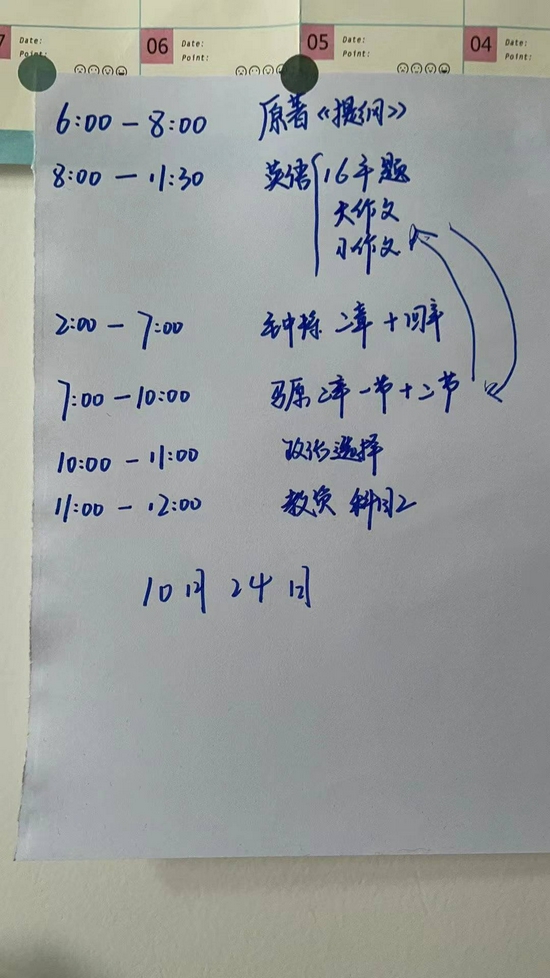 7 Date:
Point:
06 Date:
Point:
05 Date:
Point:
04 Date:
Point:
6:00 — 8:00 原著《提纲》
8:00 — 11:30 英语 16年题
大作文
小作文
2:00 — 7:00 毛中特 二章 十四章
7:00 — 10:00 马原 2章 一节 + 二节
10:00 — 11:00 政治选择
11:00 — 12:00 教资 科目2
10月 24日